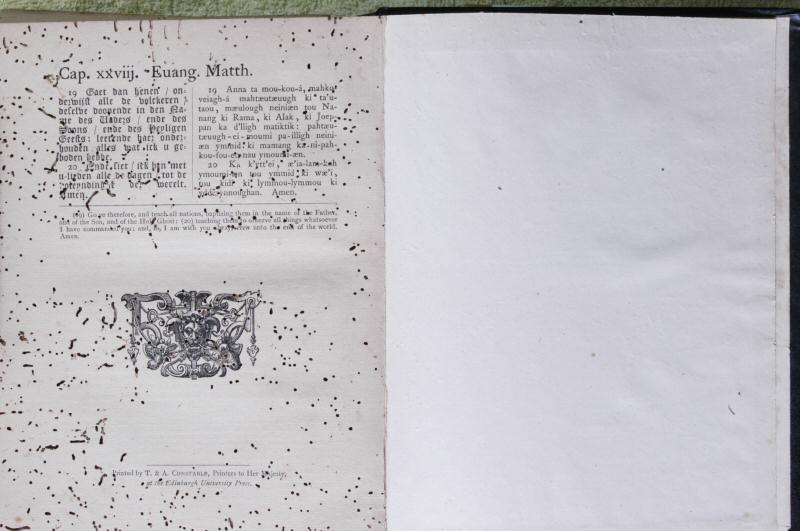 Cap. xxviij. Euang. Matth.
19 Gaet dan henen / on-
derwijst alle de volckeren /
deselve doopende in den Na-
me des Vaders / ende des
Soons / ende des Heyligen
Geests: leerende haer onder-
houden alles wat ick u ge-
boden hebbe.
20 Ende siet / ick ben met
u-lieden alle de dagen / tot de
voleyndinge der werelt.
Amen.
19 Anna ta mou-kou-á, mahkoʼ
veiagh-á mahtæutæuugh ki ta'u-
taou, mæulough neiniæn tou Na-
nang ki Rama, ki Alak, ki Joep-
pan ka d'lligh matiktik: pahtæu-
tæuugh-ei-moumi pa-illigh neini-
æn ymmid ki mamang ka-ni-pah-
kou-fou-ei-nau ymoumi-æn.
20 Ka k'ytt'ei, æ'ia-lam-koh
ymoumi-æn tou ymmid ki wæ'i,
tou kidi ki lymmou-lymmou ki
Amen.
(19) Go ye therefore, and teach all nations, baptizing them in the name of the Father,
and of the Son, and of the Holy Ghost: (20) teaching them to observe all things whatsoever
I have commanded you: and, lo, I am with you alway, even unto the end of the world.
Amen.
Printed by T. & A. Constable, Printers to Her Majesty,
at the Edinburgh University Press.